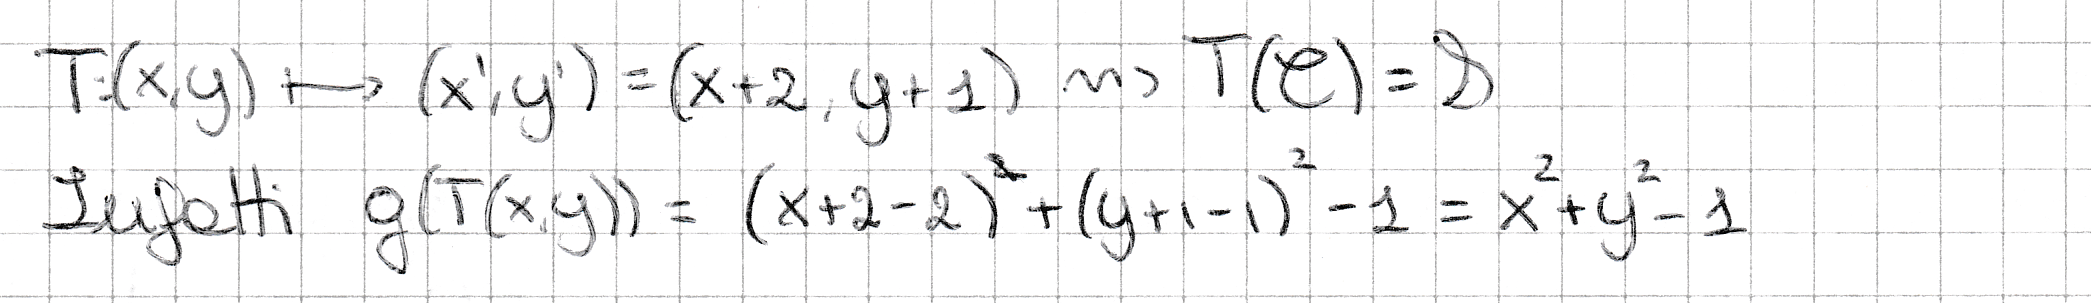 T:(x,y) ⟼ (x',y') = (x+2, y+1) ⇝ T(𝒞) = 𝒟
Infatti g(T(x,y)) = (x+2-2)² + (y+1-1)² - 1 = x² + y² - 1